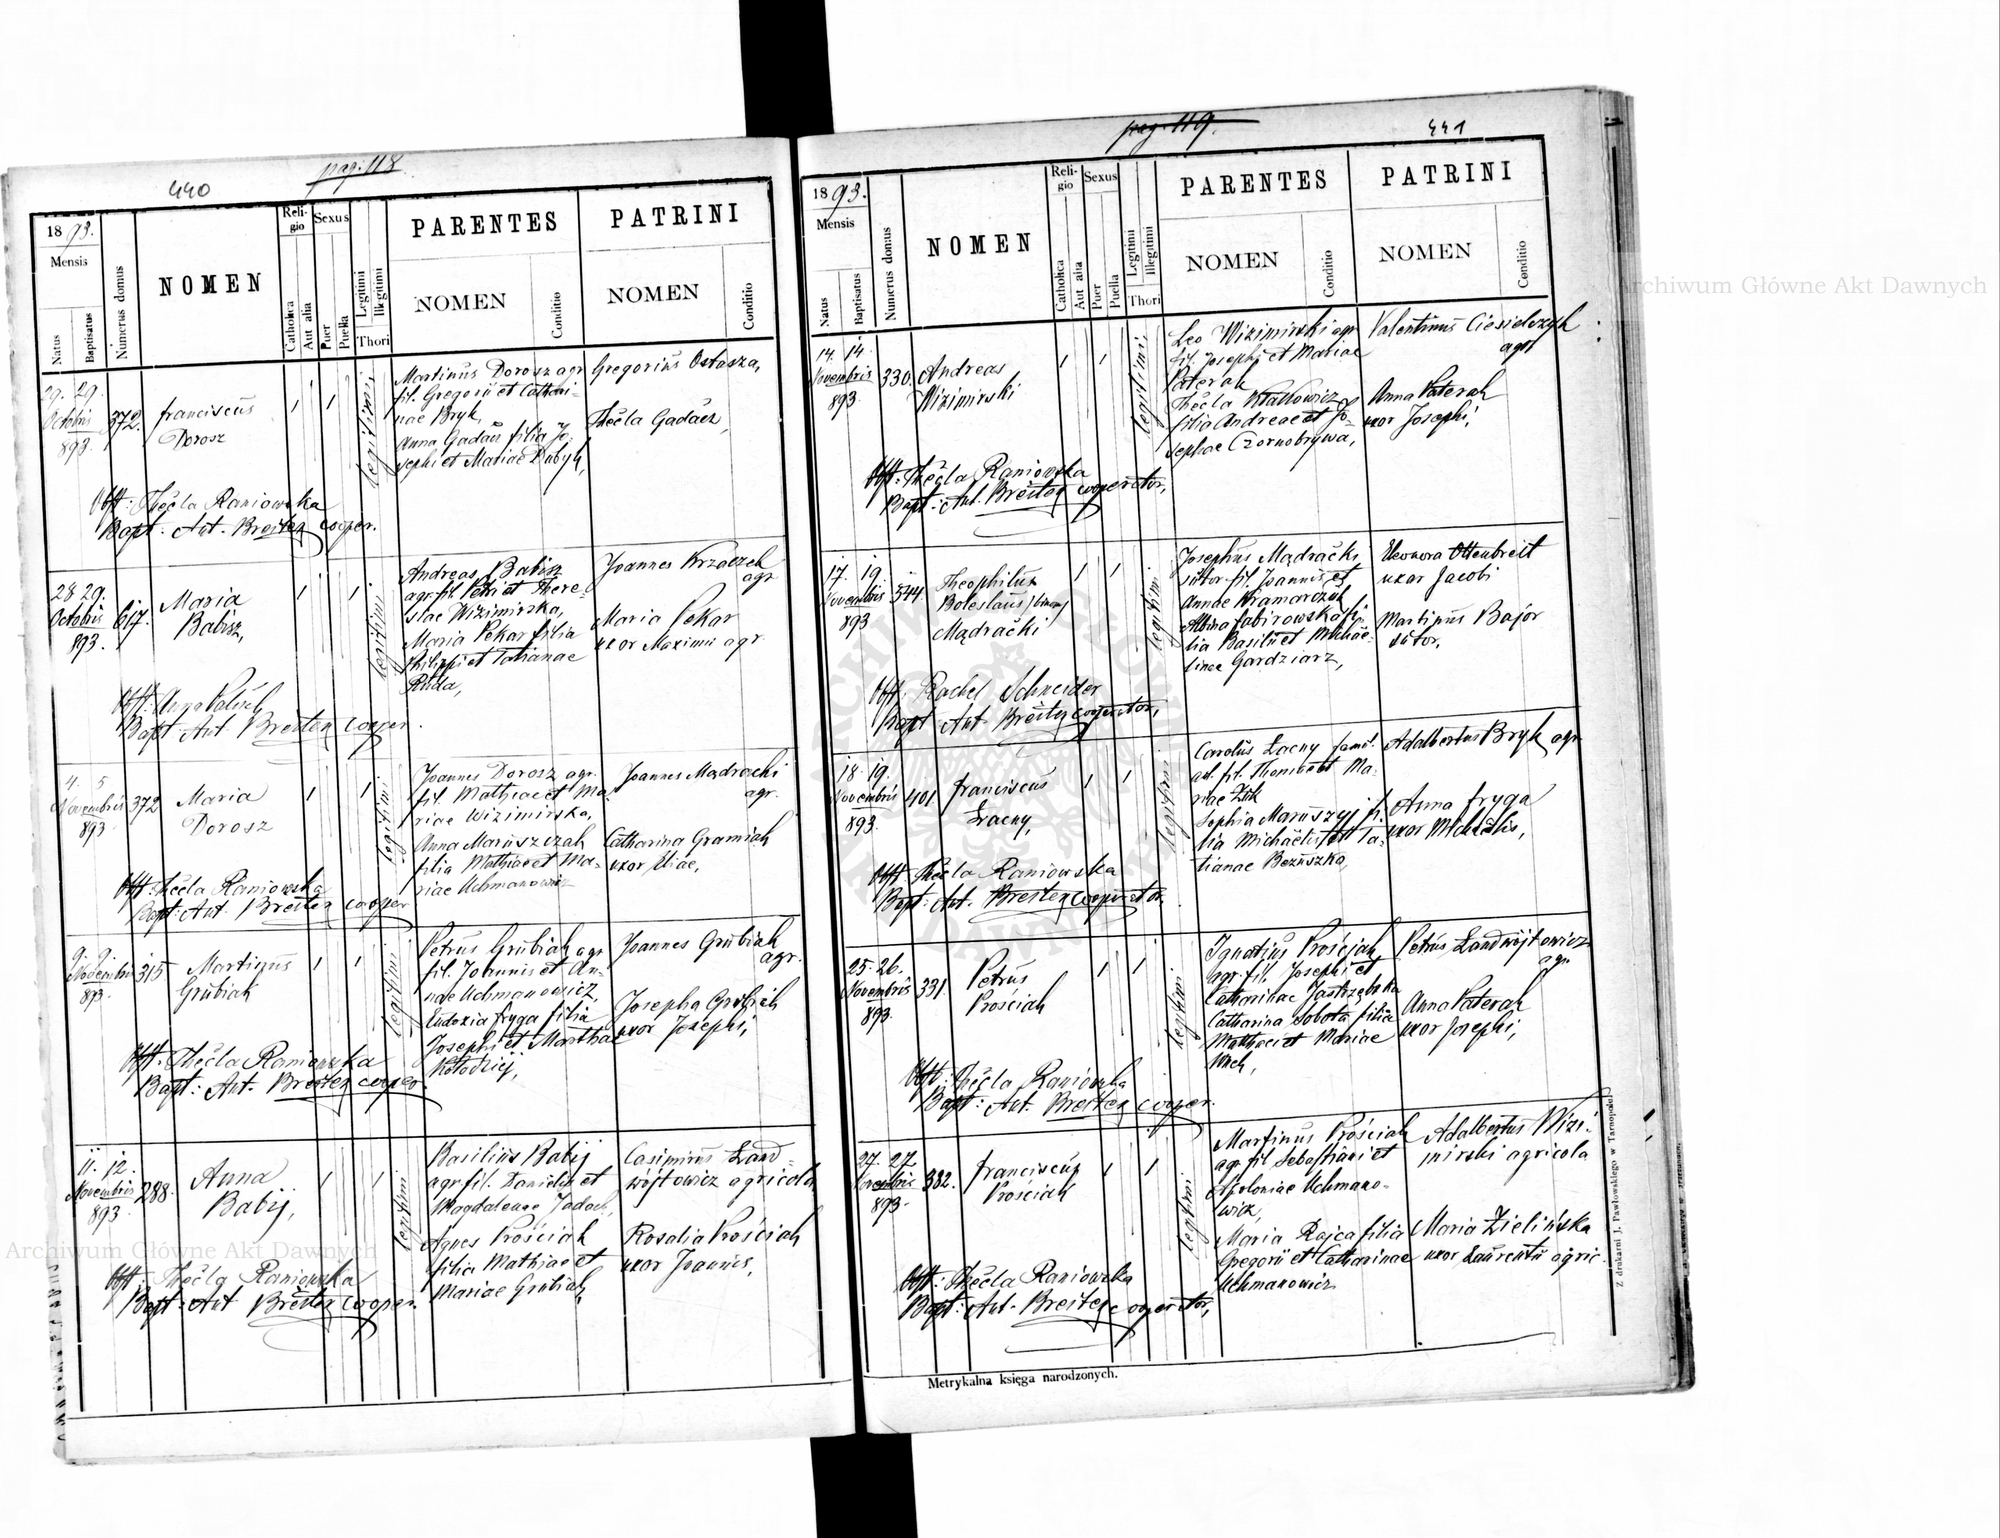 pag. 118
440
18 93.
Mensis
Natus
Baptisatus
Numerus domus
NOMEN
Reli-
gio
Catholica
Aut alia
Sexus
Puer
Puella
Legitimi
Illegitimi
Thori
PARENTES
NOMEN
Conditio
PATRINI
NOMEN
Conditio
29. 29.
Octobris
893.
372.
Franciscus
Dorosz
legitimi
Martinus Dorosz agr
fil. Gregorii et Cathari-
nae Bryk,
Anna Gadacz filia Jo-
sephi et Mariae Dubyk,
Gregorius Ostasza,
Thecla Gadacz,
Obst: Thecla Raniowska
Bapt: Ant. Breiter cooper.
28 29.
Octobris
893.
617.
Maria
Babisz,
legitimi
Andreas Babisz
agr. fil. Petri et There-
siae Wizimirska,
Maria Pekar filia
Philippi et Tatianae
Ruda,
Joannes Krzaczek
agr
Maria Pekar
uxor Maximi agr
Obst: Anna
Bapt Ant Breiter cooper.
4. 5
Novembris
893.
372
Maria
Dorosz
legitimi
Joannes Dorosz agr.
fil. Mathiae et Ma-
riae Wizimirska,
Anna Maruszczak
filia Mathiae et Ma-
riae Uchmanowicz
Joannes Mądracki
agr.
Catharina Gramiak
uxor Eliae,
Obst: Thecla Raniowska
Bapt: Ant. Breiter cooper
9. 9.
Novembris
893.
315
Martinus
Grubiak
legitimi
Petrus Grubiak agr
fil. Joannis et An-
nae Uchmanowicz,
Eudoxia Fryga filia
Josephi et Marthae
Kołodziej,
Joannes Grubiak
agr.
Josepha Grubiak
uxor Josephi,
Obst: Thecla Raniowska
Bapt: Ant. Breiter cooper.
11. 12.
Novembris
893.
288.
Anna
Babij,
legitimi
Basilius Babij
agr. fil. Danielis et
Magdalenae
Agnes Prościak
filia Mathiae et
Mariae Grubiak,
Casimirus Land-
wójtowicz agricola,
Rosalia Prościak
uxor Joannis,
Obst: Thecla Raniowska
Bapt: Ant Breiter cooper.
pag. 119.
441
18 93.
Mensis
Natus
Baptisatus
Numerus domus
NOMEN
Reli-
gio
Catholica
Aut alia
Sexus
Puer
Puella
Legitimi
Illegitimi
Thori
PARENTES
NOMEN
Conditio
PATRINI
NOMEN
Conditio
14. 14.
Novembris
893.
330.
Andreas
Wizimirski
legitimi
Leo Wizimirski agr
fil. Josephi et Mariae
Paterak
Thecla
filia Andreae et Jo-
sephae Czornobrywa,
Valentinus Ciesielczyk
agr
Anna Paterak
uxor Josephi,
Obst: Thecla Raniowska
Bapt: Ant. Breiter cooperator,
17. 19.
Novembris
893
544
Theophilus
Boleslaus
Mądracki
legitimi
Josephus Mądracki
sutor fil. Joannis et
Annae Kramarczuk
Albina fi-
lia Basilii et Michae-
linae Gardziarz,
Eleonora Ottenbreit
uxor Jacobi
Martinus Bajor
sutor,
Obst: Rachel Schneider
Bapt: Ant. Breiter cooperator,
18. 19.
Novembris
893.
401
Franciscus
Łacny,
legitimi
Carolus Łacny
fil. Thomae et Ma-
riae
Sophia Maruszyj fi-
lia Michaelis et Ta-
tianae Bezuszko,
Adalbertus Bryk agr
Anna Fryga
uxor Michaelis,
Obst: Thecla Raniowska
Bapt: Ant. Breiter cooperator
25. 26.
Novembris
893.
331.
Petrus
Prościak
legitimi
Ignatius Prościak,
agr. fil. Josephi et
Catharinae Jastrzębska
Catharina Sobota filia
Mathaei et Mariae
Petrus Landwójtowicz
agr.
Anna Paterak
uxor Josephi,
Obst: Thecla Raniowska
Bapt: Ant. Breiter cooper.
27. 27.
Novembris
893.
382.
Franciscus
Prościak
legitimi
Martinus Prościak
agr. fil Sebastiani et
Apoloniae Uchmano-
wicz,
Maria Rajca filia
Gregorii et Catharinae
Uchmanowicz
Adalbertus Wizi-
mirski agricola
Maria Zielińska
uxor Laurentii agric.
Obst: Thecla Raniowska
Bapt: Ant. Breiter cooperator,
Metrykalna księga narodzonych.
Z drukarni J. Pawłowskiego w Tarnopolu
Archiwum Główne Akt Dawnych
Archiwum Główne Akt Dawnych